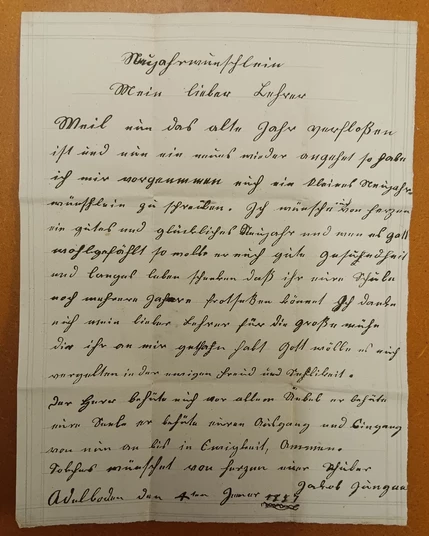 Neujahrwünschlein
Mein lieber Lehrer
Weil nun das alte Jahr verfloßen
ist und nun ein neues wieder angehet so habe
ich mir vorgenommen euch ein kleines Neujahr-
wünschlein zu schreiben. Ich wünsche von herzen
ein gutes und glückliches Neujahr und wen es gott
wohlgefählt so wolle er euch gute Gesundheit
und langes leben schenken daß ihr eure Schule
noch mehrere Jahre fortsetzen könnet Ich danke
euch mein lieber Lehrer für die große mühe
die ihr an mir gethan habt Gott wölle es euch
vergelten in der ewigen freud und Sehligkeit.
Der Herr behüte euch vor allem Uebel er behüte
eure Seele er behüte euren Ausgang und Eingang
von nun an bis in Ewigkeit, Ammen.
Solches wünschet von herzen euer Schüler
Jakob
Adelboden den 4ten Jenner